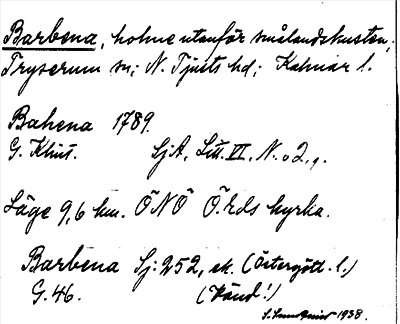 Barbena, holme utanför smålandskusten,
Tryserum sn; N. Tjusts hd; Kalmar l.
Bahena 1789.
G. Klint. SjA, Litt. VI, N.o 2.
Läge 9,6 km. ÖNÖ Ö.rds kyrka.
Barbena Sj: 252, sk. (Östergötl. l.)
G. 46. (Vänd!)
1938.